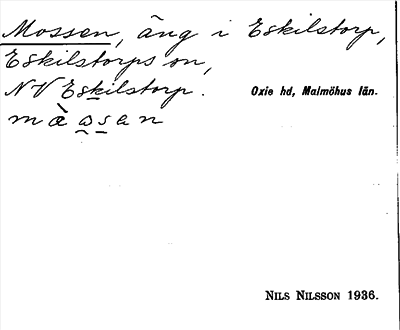 Mossen, äng i Eskilstorp,
Eskilstorps sn,
NV Eskilstorp.
Oxie hd, Malmöhus län.
NILS NILSSON 1936.